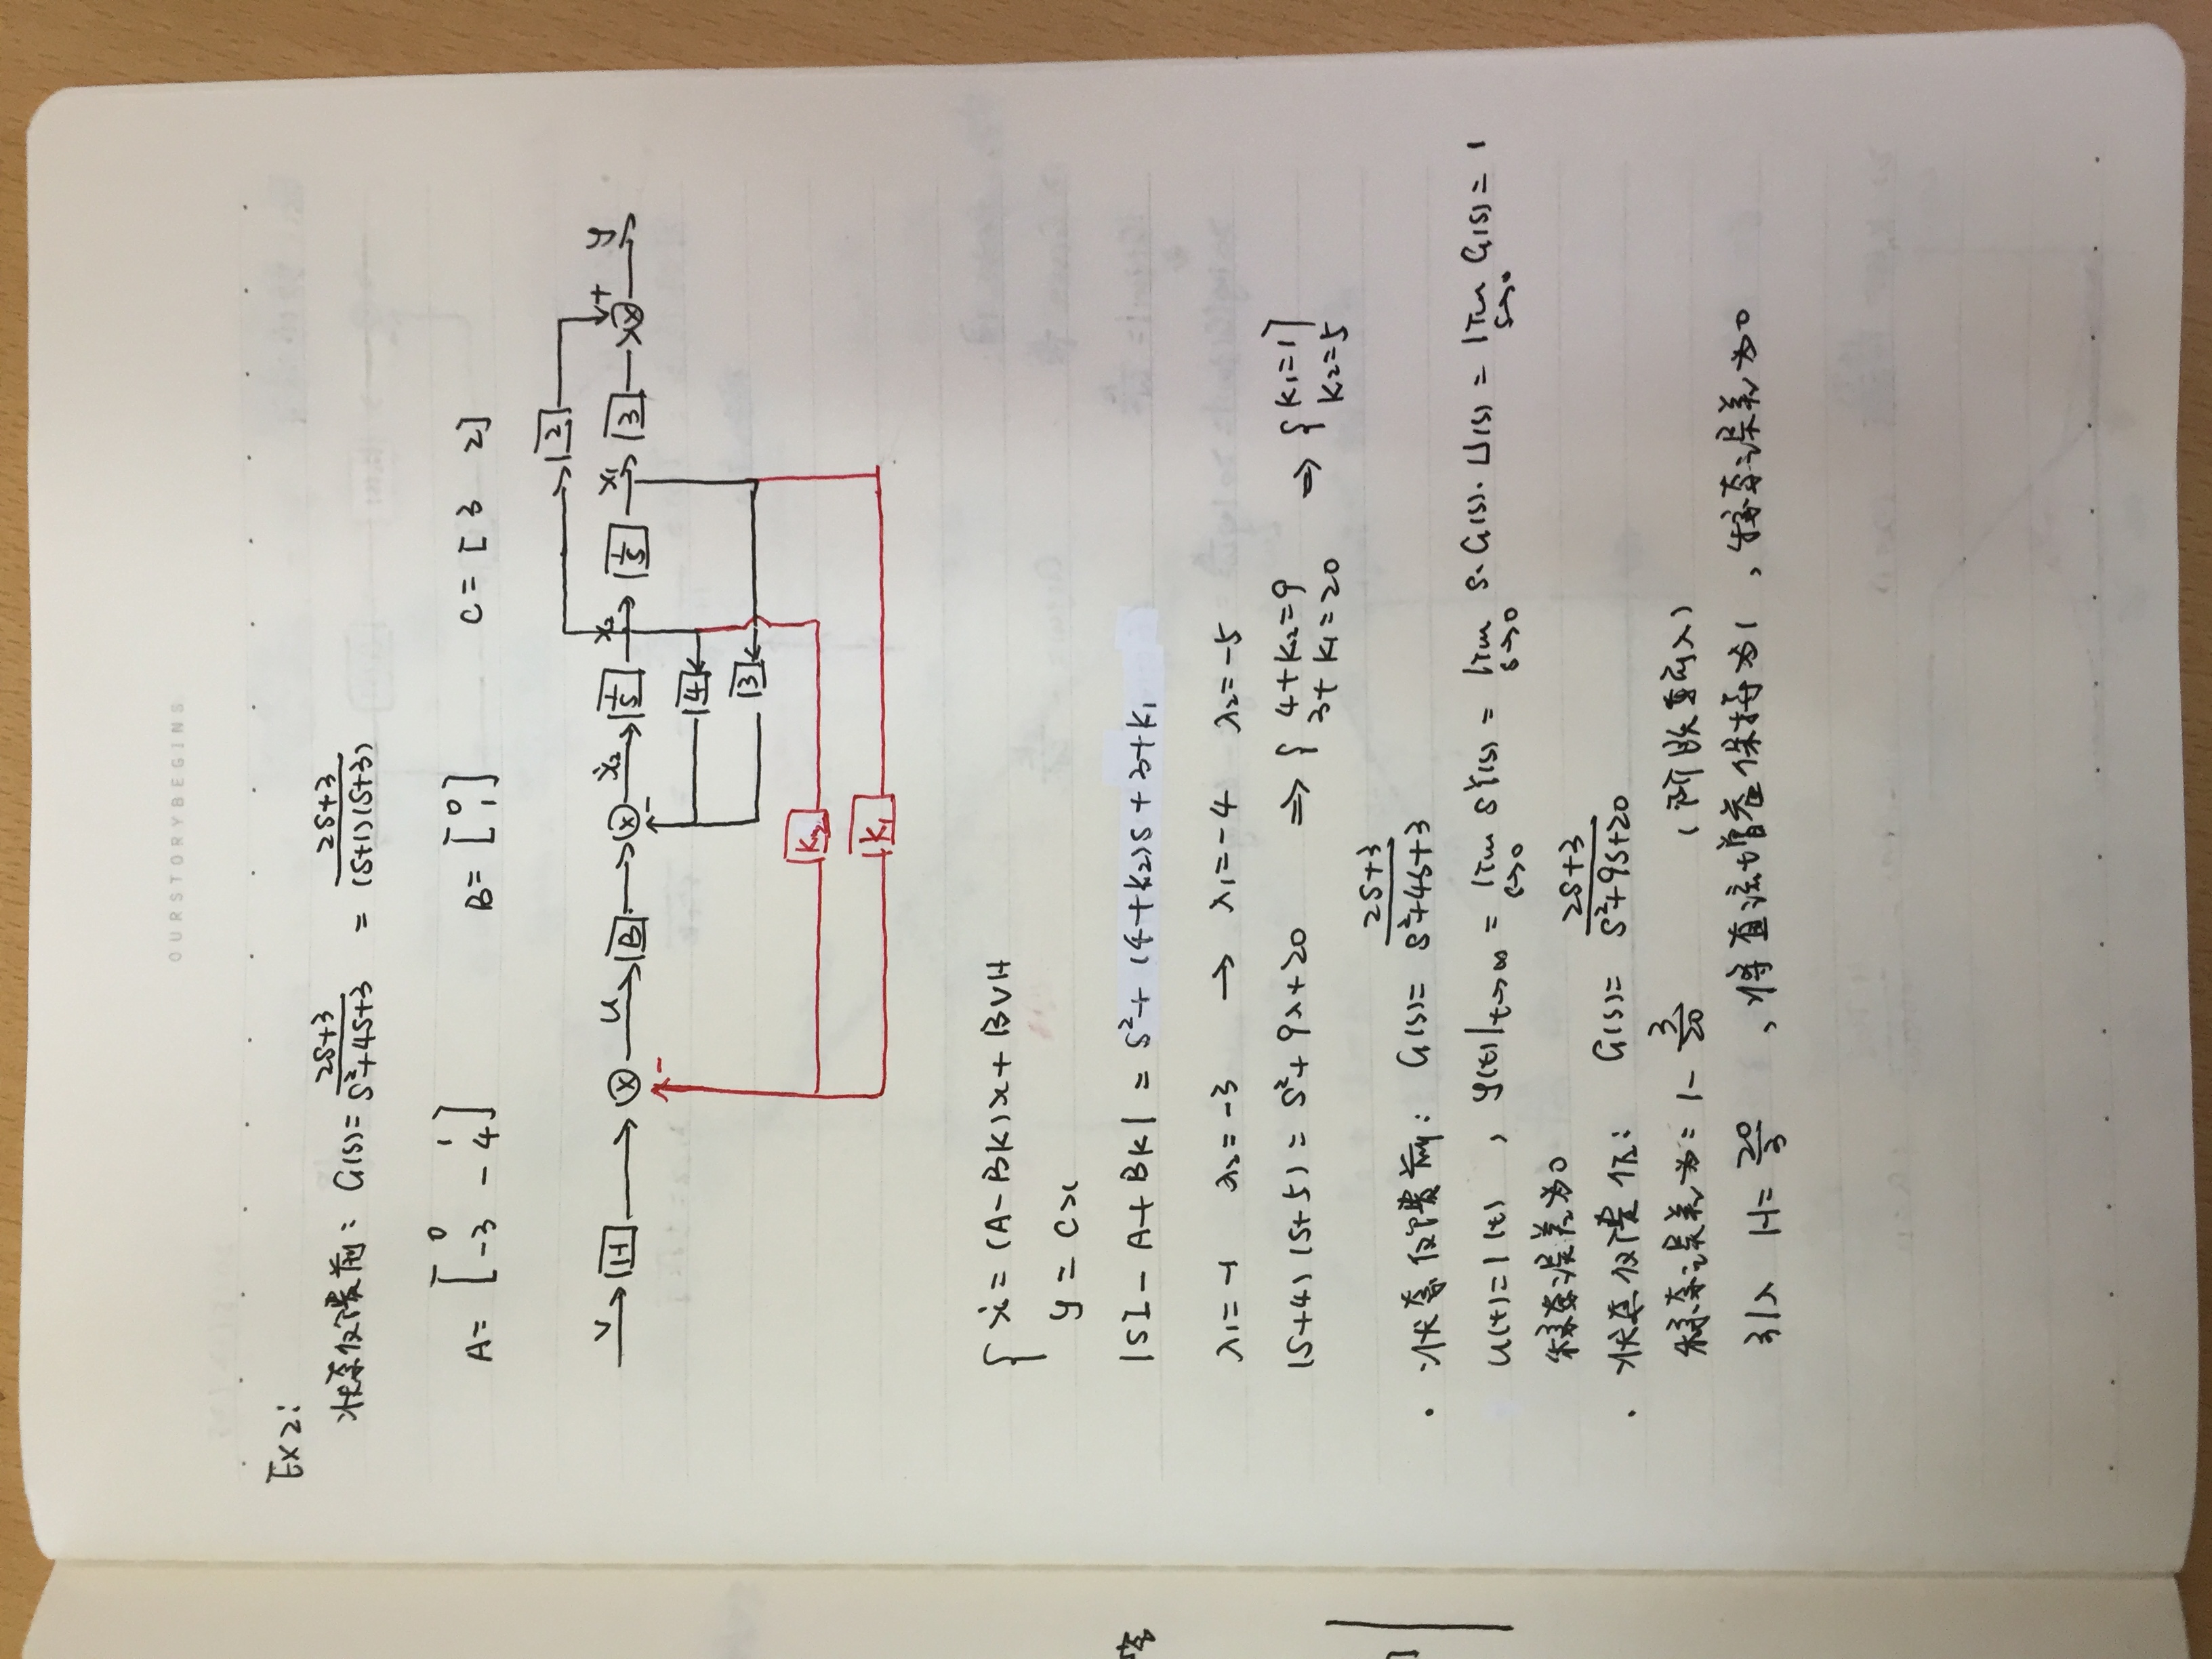 OURSTORYBEGINS
Ex2:
状态反馈前: G(s)= (2S+3)/(S²+4S+3) = (2S+3)/((S+1)(S+3))
A= [0 1; -3 -4] B= [0; 1] C = [3 2]
V H u B ẋ₂ 1/S x₂ 1/S x₁ 3 2 + y
- -
4
3
K₂
K₁
{ ẋ = (A-BK)x + BVH
y = Cx
|SI - A + BK| = S² + (4+K₂)S + 3+K₁
λ₁=-1 λ₂=-3 → λ₁=-4 λ₂=-5
(S+4)(S+5) = S²+9λ+20 ⇒ { 4+K₂=9 3+K₁=20 ⇒ { K₁=17 K₂=5
· 状态反馈前: G(s)= (2S+3)/(S²+4S+3)
u(t)=1(t) , y(t)|t→∞ = lim s→0 SY(s) = lim s→0 S·G(s)·U(s) = lim s→0 G(s) = 1
稳态误差为0
· 状态反馈后: G(s)= (2S+3)/(S²+9S+20)
稳态误差为: 1- 3/20 (阶跃输入)
引入 H= 20/3 , 将直流增益保持为1 , 稳态误差为0